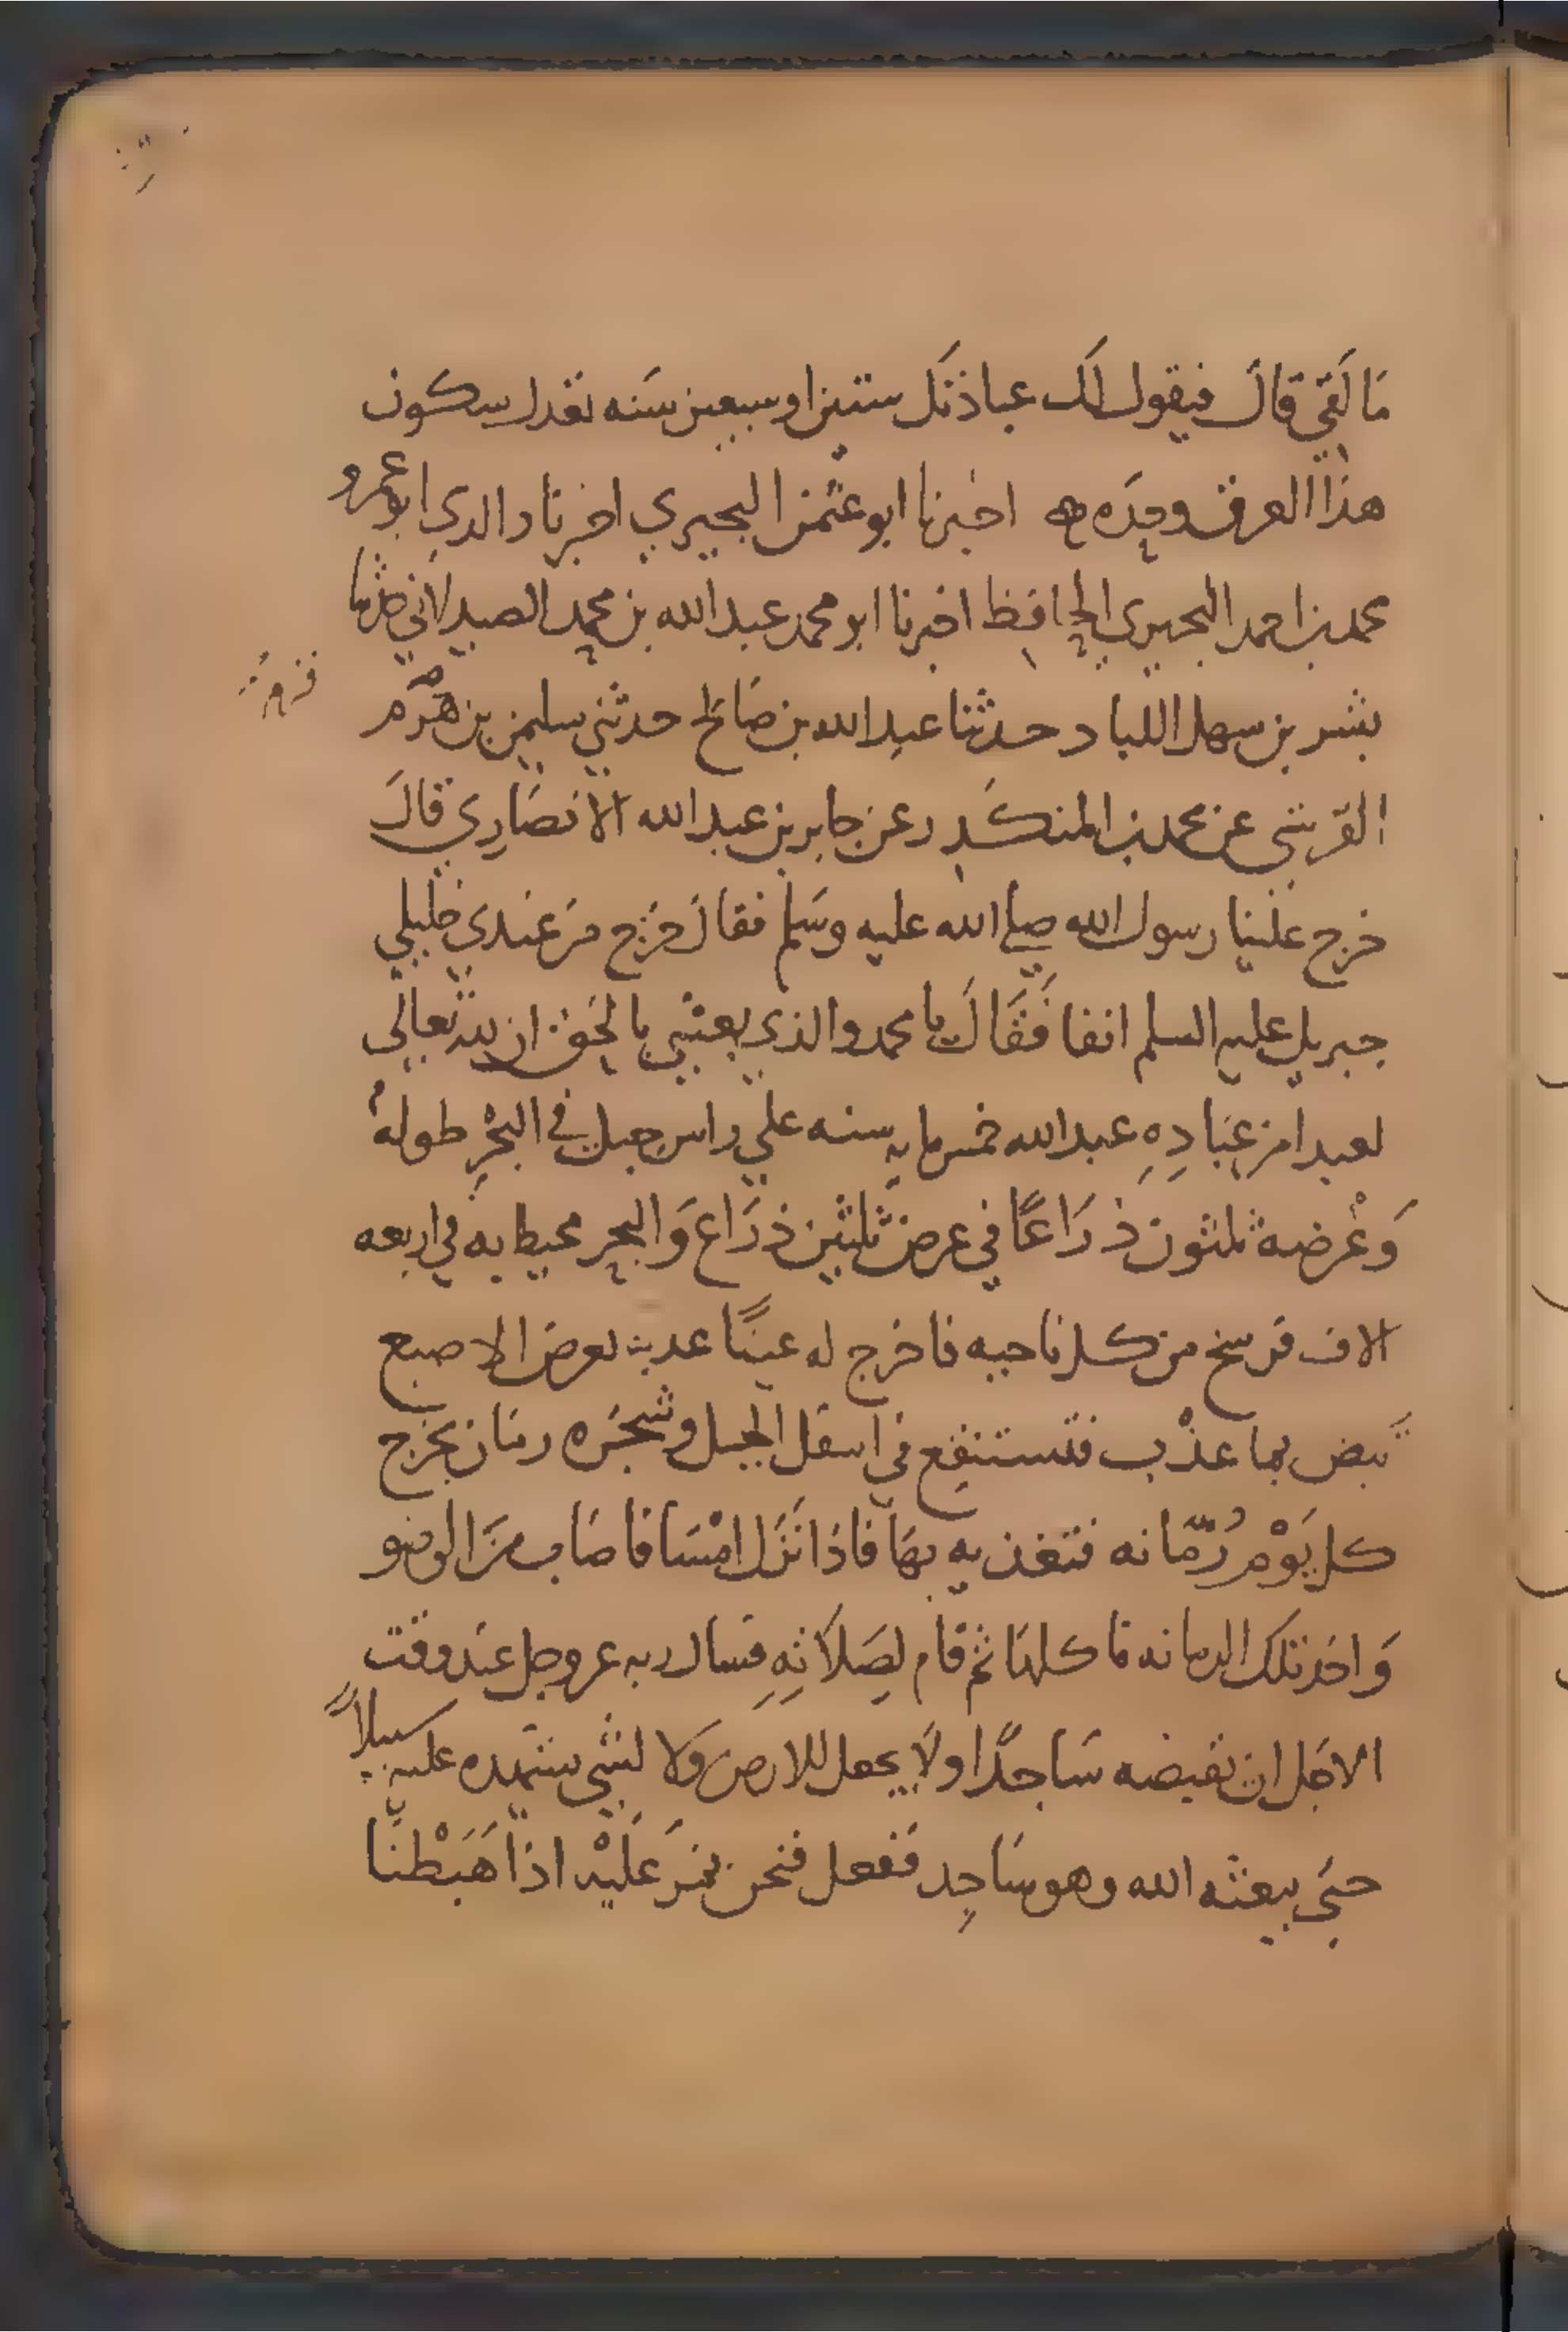 مَا لَقِيَ قالَ فيقول لَك عبادتَك ستين او سبعين سَنه تعدل سكون
هذا العرق وحِدَه ه اخبرنا ابو عثمن البحيري اخبرنا والدي ابو عمرو
محمد بن احمد البحيري الحافظ اخبرنا ابو محمد عبد الله بن محمد الصيدلاني حدثنا
بشر بن سهل اللباد حدثنا عبد الله بن صَالح حدثني سليمن بن هَرَم
القرشي عن محمد بن المنكَدِر عن جابر بن عبد الله الانصَارِي قالَ
خرج علينا رسول الله صلى الله عليه وسَلم فقالَ خرَج من عندي خليلي
جبريل عليه السلم انفا فَقَالَ يا محمد والذي بعثني بالحَق ان لله تعالى
لعبدا من عِبَادِهِ عبد الله خمس مايه سنه علي راس جبل في البحْرِ طولهُ
وَعَرْضه ثلثون ذرَاعًا في عرض ثلثين ذرَاع وَالبحر محيط به في اربعه
الاف فرسخ من كل ناحيه فاخرج له عينًا عذبه بعرض الاصبع
تَبض بما عذْب فتستنقِع في اسفل الجبل وشجَره رمان يخرج
كل يَوْم رُمّانه فتغذيه بهَا فاذا نَزَل امْسَا فاصَاب منَ الوضو
وَاخذ تلك الرمانه فاكلهَا ثم قام لِصَلاتِهِ فسال ربه عز وجل عند وقت
الاجَل ان يقبضه سَاجدًا ولَا يجعل للارض وَلا لشي يفسده عليه سبيلاً
حتَى يبعثه الله وهو سَاجِد فَفعل فنحن نمرَ عَليْه اذا هَبَطْنَا